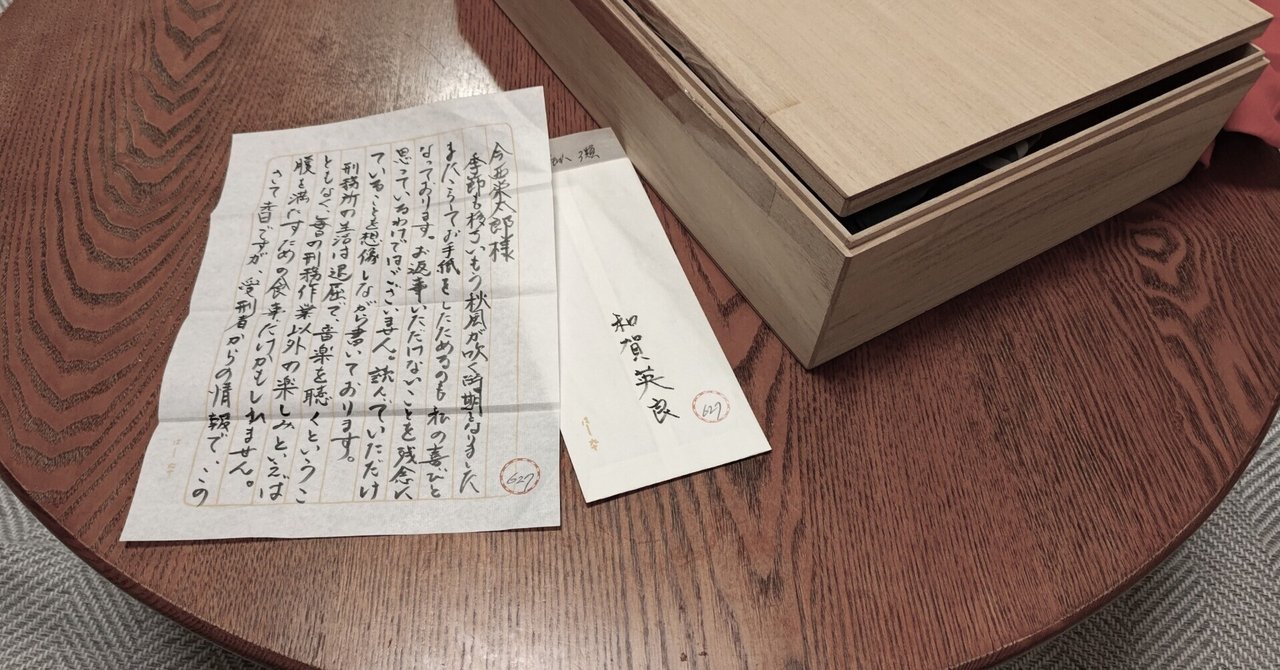 今西栄太郎様
季節も移ろいもう秋風が吹く時期となりました
また、こうしてお手紙をしたためるのも私の喜びと
なっております。お返事いただけないことを残念に
思っているわけではございません。読んでいただけ
ていることを想像しながら書いております。
刑務所の生活は退屈で、音楽を聴くというこ
ともなく、毎日の刑務作業以外の楽しみといえば
腹を満たすための食事だけかもしれません。
さて昔ですが、受刑者からの情報で、この
627
和賀英良
627